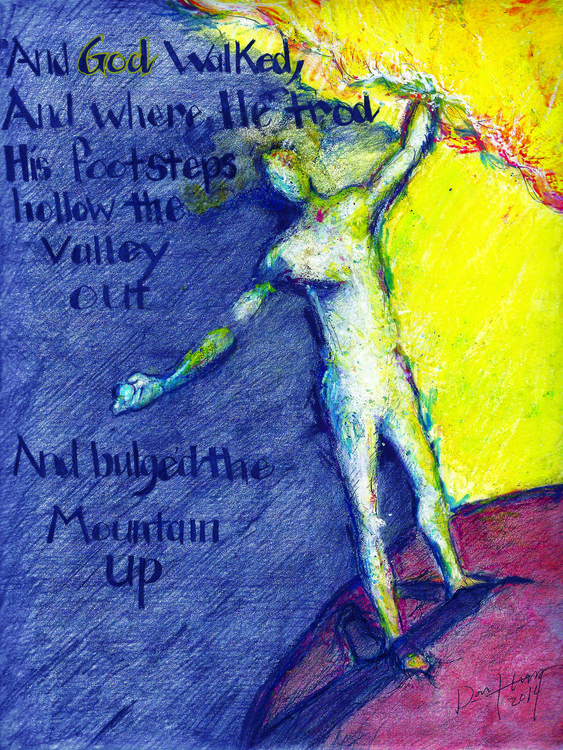 "And God Walked,
And where He trod
His footsteps
hollow the
Valley
out
And bulged the
Mountain
up
2014